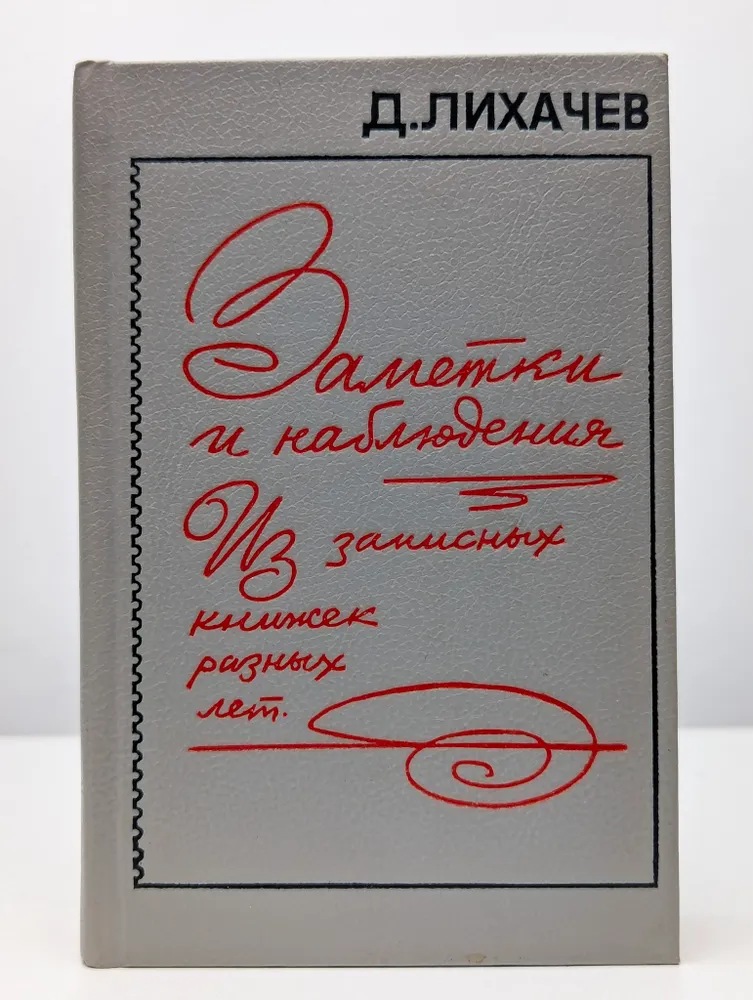 Д.ЛИХАЧЕВ
Заметки
и наблюдения
Из записных
книжек
разных
лет.